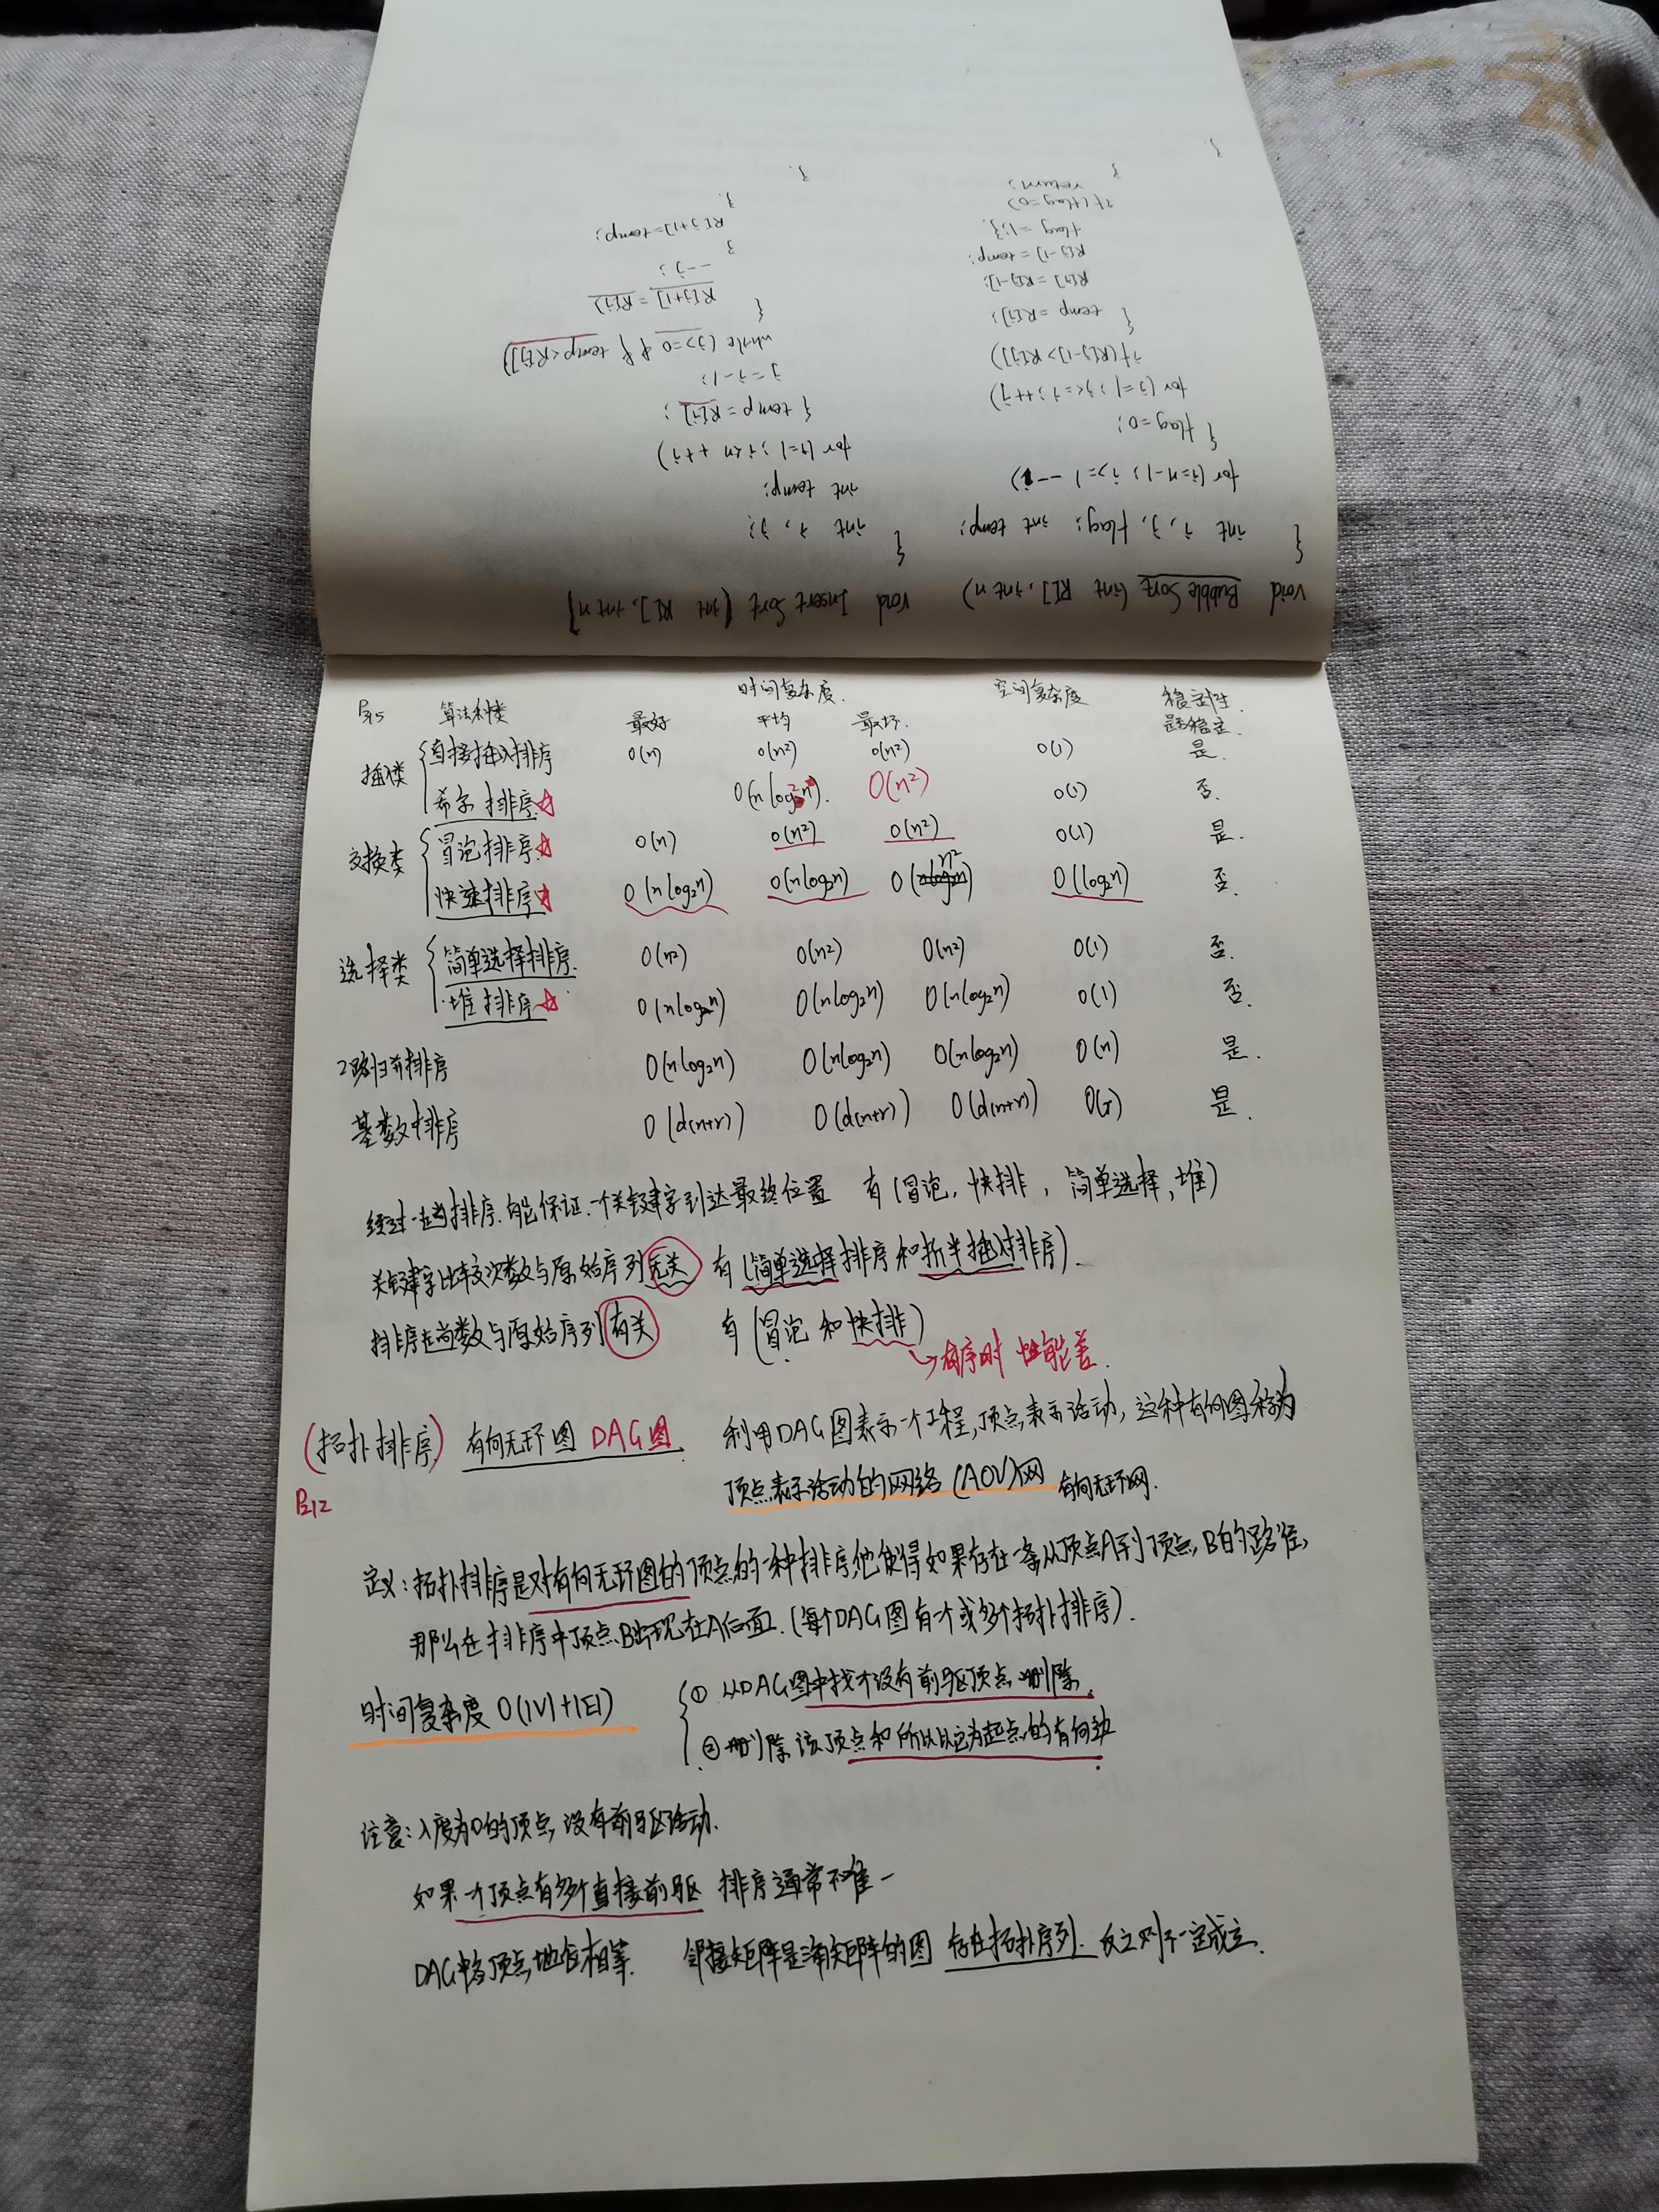 void Bubble Sort (int R[], int n)
{
int i, j, flag; int temp;
for (i=n-1; i>=1 --i)
{ flag=0;
for (j=1; j<=i; ++j)
if (R[j-1] > R[j])
{ temp = R[j];
R[j] = R[j-1];
R[j-1] = temp;
flag = 1;}
if (flag=0)
return;
}
}
void Insert Sort (int R[], int n]
{
int i, j;
int temp;
for (i=1; i<n ++i)
{ temp = R[i];
j=i-1;
while (j>=0 && temp<R[j])
{
R[j+1] = R[j]
--j;
}
R[j+1]=temp;
}.
}.
时间复杂度. 空间复杂度 稳定性.
算法种类 最好 平均 最坏. 是否稳定.
插入类 直接插入排序 O(n) O(n²) O(n²) O(1) 是.
希尔排序 O(n²) O(1) 否.
交换类 冒泡排序. O(n) O(n²) O(n²) O(1) 是.
快速排序 O(nlog₂n) O(nlog₂n) O(n²) O(log₂n) 否.
选择类 简单选择排序. O(n²) O(n²) O(n²) O(1) 否.
堆排序 O(nlog₂n) O(nlog₂n) O(nlog₂n) O(1) 否.
2路归并排序 O(nlog₂n) O(nlog₂n) O(nlog₂n) O(n) 是.
基数排序 O(d(n+r)) O(d(n+r)) O(d(n+r)) O(r) 是.
经过一趟排序.能保证一个关键字到达最终位置 有(冒泡, 快排, 简单选择, 堆)
关键字比较次数与原始序列无关 有(简单选择排序和折半插入排序).
排序趟数与原始序列有关 有(冒泡和快排)
有序时 性能差.
(拓扑排序) 有向无环图 DAG图. 利用DAG图表示一个工程,顶点表示活动,这种有向图称为
P212 顶点表示活动的网络(AOV)网 有向无环网.
定义:拓扑排序是对有向无环图的顶点的一种排序,他使得如果存在一条从顶点A到顶点B的路径,
那么在排序中顶点B出现在A后面.(每个DAG图有一个或多个拓扑排序).
时间复杂度 O(|V|+|E|) ① 从DAG图中找个没有前驱顶点 删除.
② 删除该顶点和所以以它为起点的有向边
注意:入度为0的顶点,没有前驱活动.
如果一个顶点有多个直接前驱 排序通常不唯一
DAG中各顶点地位相等. 邻接矩阵是三角矩阵的图 存在拓扑序列. 反之则不一定成立.